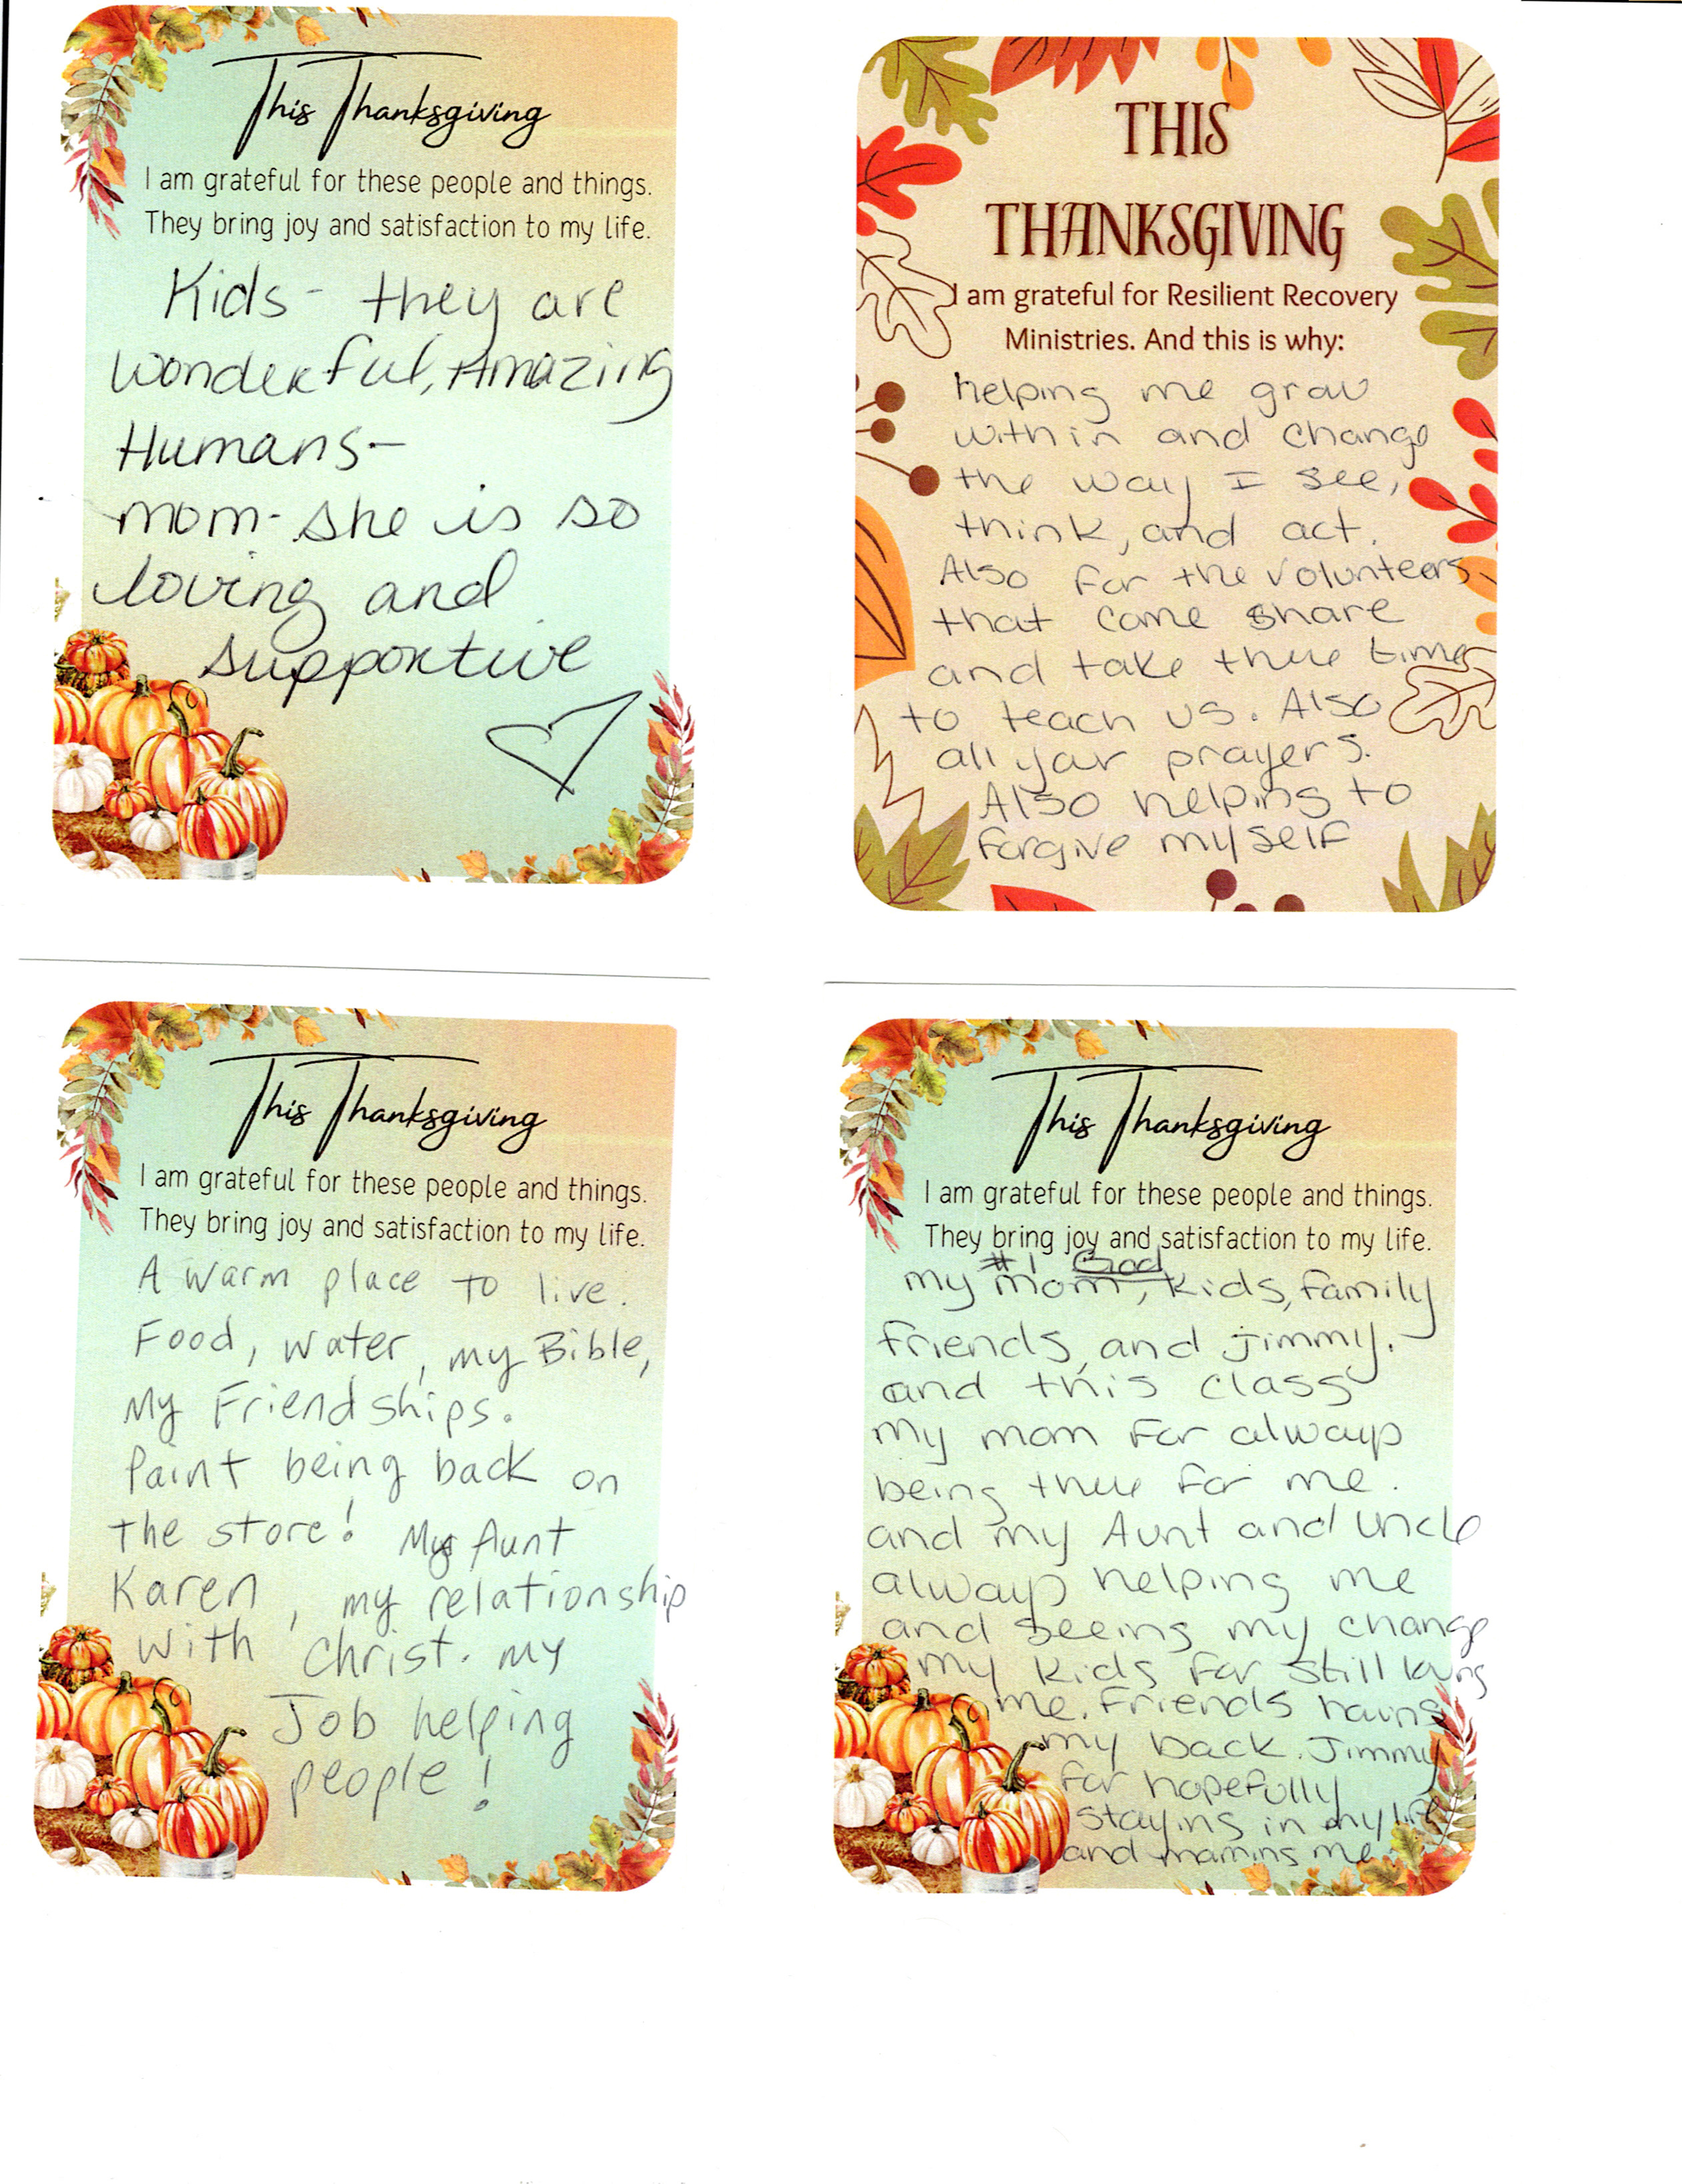 This Thanksgiving
I am grateful for these people and things.
They bring joy and satisfaction to my life.
Kids - they are
wonderful, Amazing
Humans-
mom- she is so
loving and
supportive
THIS
THANKSGIVING
I am grateful for Resilient Recovery
Ministries. And this is why:
helping me grow
within and change
the way I see,
think, and act.
Also for the volunteers
that come share
and take there time
to teach us. Also
all your prayers.
Also helping to
forgive myself
This Thanksgiving
I am grateful for these people and things.
They bring joy and satisfaction to my life.
A warm place to live.
Food, water, my Bible,
My Friendships.
Paint being back on
the store! My Aunt
Karen, my relationship
with Christ. my
Job helping
people!
This Thanksgiving
I am grateful for these people and things.
They bring joy and satisfaction to my life.
#1 God
my mom, kids, family
friends, and jimmy.
and this class
my mom for always
being there for me.
and my Aunt and uncle
always helping me
and seeing my change
my kids for still loving
me. Friends having
my back. Jimmy
for hopefully
staying in my life
and me